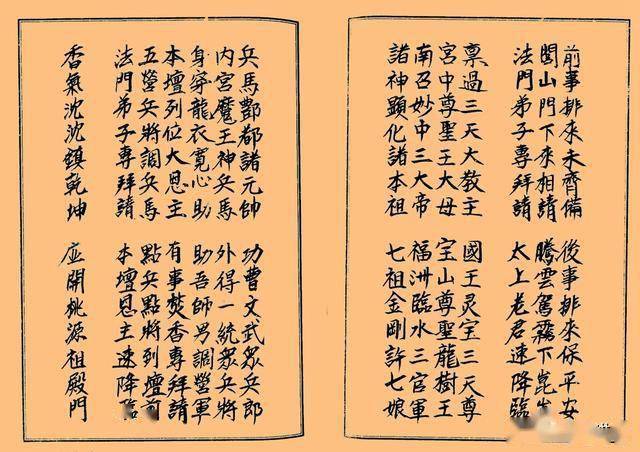 前事排來未齊備 後事排來保平安
閭山門下來相請 騰雲駕霧下崑
法門弟子專拜請 太上老君速降臨
稟過三天大教主 國王灵宝三天尊
宮中尊聖王大母 宝山尊聖龍樹王
南召妙中三大帝 福洲臨水三官軍
諸神顯化諸本祖 七祖金剛許七娘
兵馬酆都諸元帥 功曹文武眾兵郎
內宮魔王神兵馬 外得一統眾兵將
身穿龍衣寬心助 助吾師男調營軍
本壇列位大恩主 有事焚香專拜請
五營兵將調兵馬 點兵點將列壇前
法門弟子專拜請 本壇恩主速降臨
香氣沈沈鎮乾坤 应開桃源祖殿門